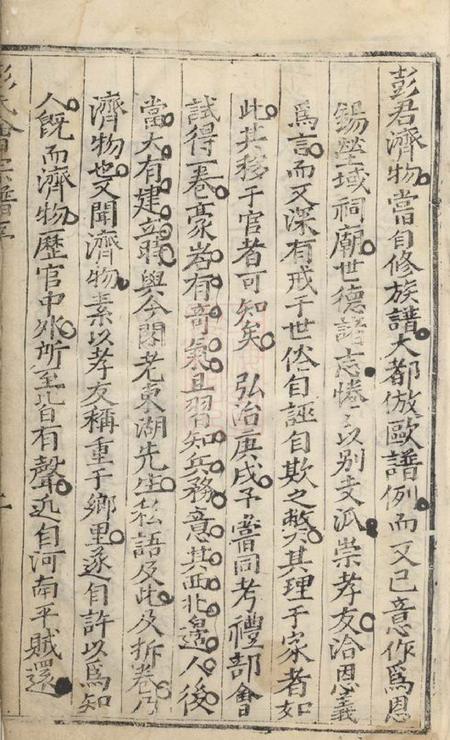 彭君濟物嘗自修族譜大都倣歐譜例而又己意作爲恩
錫塋域祠廟世德諸志惓〻以别支派崇孝友洽恩義
爲言而又深有戒于世俗自誣自欺之弊其理于家者如
此其移于官者可知矣　弘治庚戌予嘗同考禮部會
試得一卷豪宕有奇氣且習知兵務意其西北邊人後
當大有建立時與今閣老東湖先生私語及此及拆卷乃
濟物也又聞濟物素以孝友稱重于鄉里遂自許以爲知
人既而濟物歷官中外所至皆有聲近自河南平賊還
彭氏會宗譜序